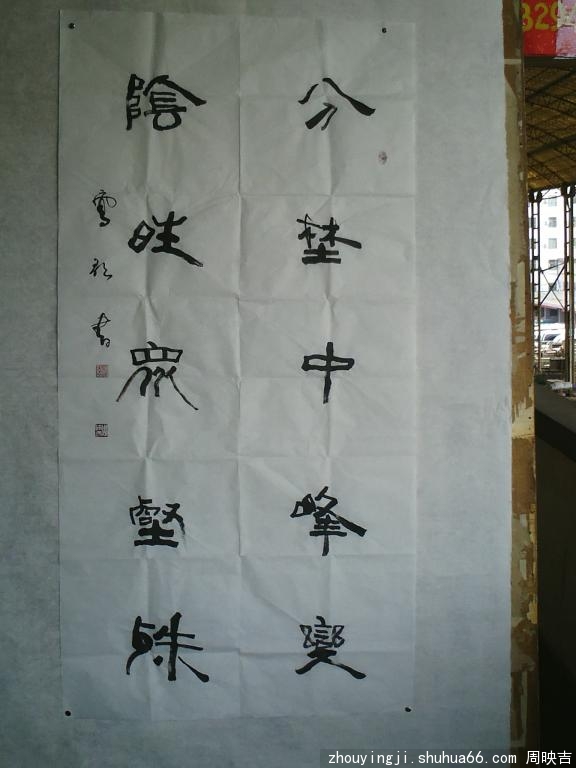 分埜中峰變
陰晴眾壑殊
書
3294
zhouyingji.shuhua66.com 周映吉